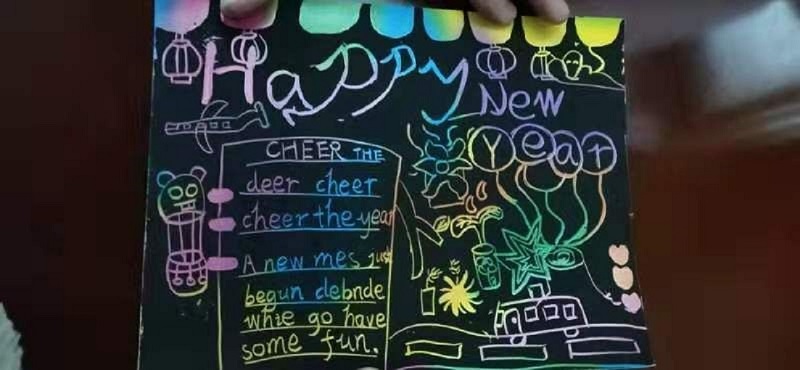 Happy
New
Year
CHEER THE
deer cheer
cheer the year
A new mes just
begun debnde
whie go have
some fun.